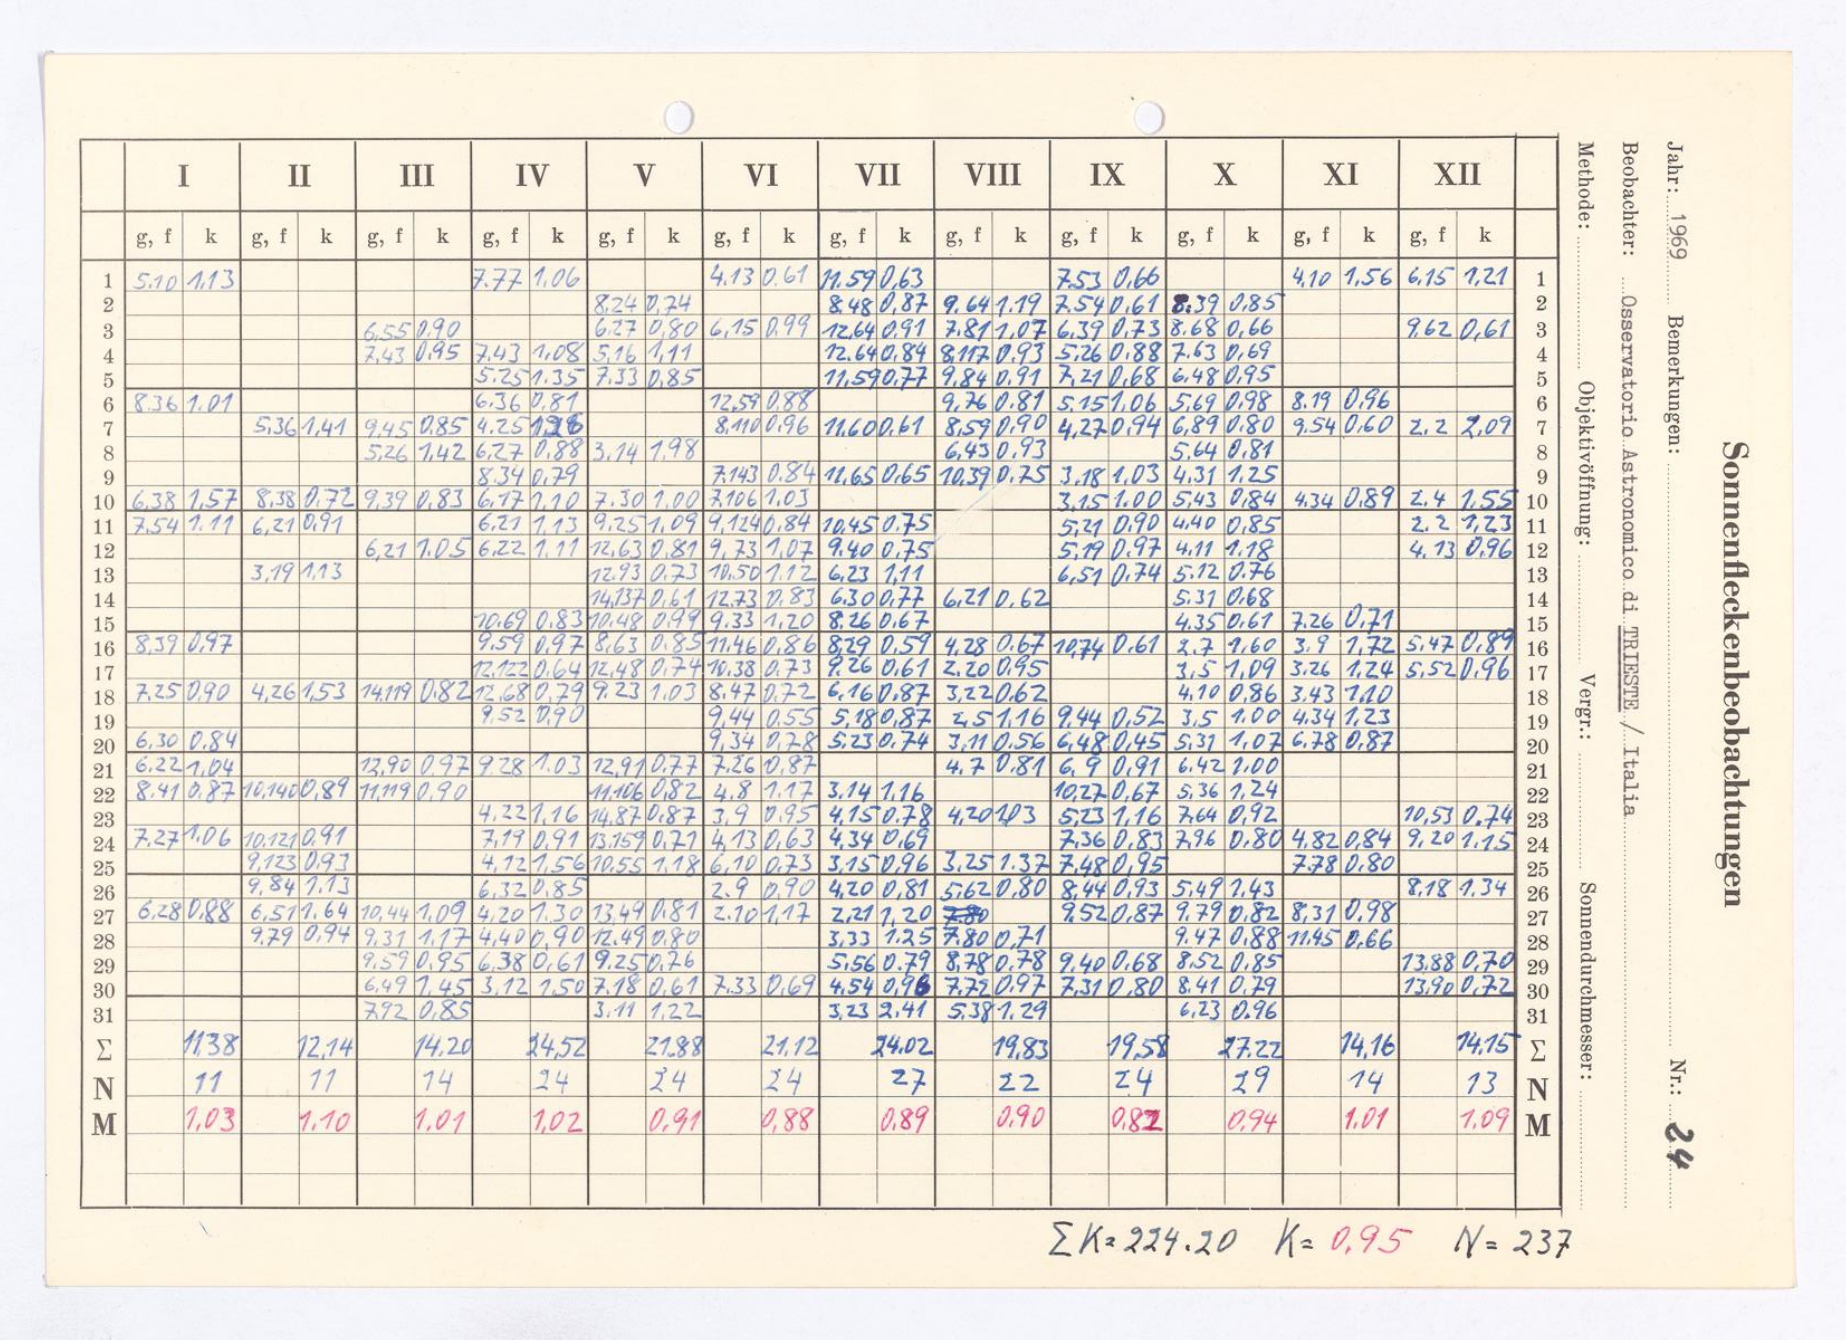 Sonnenfleckenbeobachtungen
Jahr: 1969 Bemerkungen: Nr.: 24
Beobachter: Osservatorio Astronomico di TRIESTE / Italia
Methode: Objektivöffnung: Vergr.: Sonnendurchmesser:
I II III IV V VI VII VIII IX X XI XII
g, f k g, f k g, f k g, f k g, f k g, f k g, f k g, f k g, f k g, f k g, f k g, f k
1 5.10 1.13 7.77 1.06 4.13 0.61 11.59 0,63 7.53 0,66 4.10 1,56 6,15 1,21 1
2 8.24 0,74 8.48 0,87 9.64 1.19 7.54 0,61 8.39 0.85 2
3 6.55 0.90 6.27 0,80 6,15 0.99 12,64 0.91 7.81 1,07 6.39 0.73 8.68 0,66 9,62 0,61 3
4 7,43 0,95 7.43 1,08 5,16 1,11 12.64 0,84 8,117 0.93 5,26 0.88 7.63 0,69 4
5 5.25 1.35 7.33 0,85 11,59 0,77 9,84 0,91 7,21 0,68 6,48 0,95 5
6 8.36 1.01 6.36 0,81 12,59 0,88 9,76 0.81 5.15 1.06 5,69 0.98 8.19 0,96 6
7 5,36 1,41 9,45 0,85 4.25 8,110 0,96 11,60 0,61 8,59 0,90 4,27 0,94 6,89 0.80 9,54 0,60 2,2 2,09 7
8 5,26 1,42 6,27 0,88 3,14 1,98 6,43 0,93 5,64 0,81 8
9 8.34 0,79 7.143 0.84 11,65 0,65 10,39 0,75 3.18 1,03 4,31 1,25 9
10 6,38 1,57 8,38 0,72 9,39 0,83 6,17 1,10 7.30 1,00 7,106 1,03 3,15 1.00 5,43 0,84 4.34 0,89 2.4 1,55 10
11 7,54 1.11 6,21 0,91 6,21 1,13 9,25 1,09 9,124 0,84 10,45 0.75 5,21 0,90 4.40 0,85 2.2 1,23 11
12 6,21 1.05 6,22 1,11 12,63 0,81 9,73 1,07 9.40 0,75 5,19 0,97 4,11 1,18 4,13 0,96 12
13 3,19 1,13 12.93 0,73 10,50 1,12 6,23 1,11 6,51 0,74 5.12 0.76 13
14 14,137 0,61 12,73 0,83 6.30 0,77 6,21 0,62 5.31 0,68 14
15 10.69 0,83 10,48 0,99 9,33 1,20 8,26 0,67 4.35 0,61 7.26 0,71 15
16 8,39 0,97 9,59 0,97 8,63 0,85 11,46 0,86 8,29 0,59 4,28 0,67 10,74 0,61 2.7 1,60 3.9 1,72 5,47 0,89 16
17 12,122 0,64 12,48 0,74 10,38 0,73 9,26 0,61 2.20 0,95 3,5 1,09 3,26 1,24 5,52 0,96 17
18 7,25 0,90 4,26 1,53 14,119 0,82 12,68 0,79 9,23 1,03 8,47 0,72 6,16 0,87 3,22 0,62 4,10 0,86 3,43 1,10 18
19 9,52 0,90 9,44 0,55 5,18 0,87 2,5 1,16 9,44 0,52 3,5 1.00 4.34 1,23 19
20 6,30 0,84 9,34 0,78 5,23 0,74 3,11 0,56 6,48 0,45 5,31 1,07 6,78 0,87 20
21 6,22 1,04 12,90 0,97 9.28 1.03 12,91 0,77 7,26 0,87 4.7 0,81 6,9 0,91 6.42 1,00 21
22 8.41 0,87 10,140 0,89 11,119 0,90 11,106 0,82 4.8 1,17 3,14 1,16 10,27 0,67 5,36 1,24 22
23 4,22 1,16 14,87 0,87 3,9 0,95 4,15 0,78 4,20 1,03 5,23 1,16 7,64 0,92 10,53 0,74 23
24 7,27 1,06 10,121 0,91 7,19 0,91 13,159 0,71 4,13 0,63 4,34 0,69 7,36 0,83 7,96 0,80 4,82 0,84 9,20 1,15 24
25 9,123 0,93 4,12 1,56 10,55 1,18 6,10 0,73 3,15 0,96 3,25 1.37 7,48 0,95 7,78 0,80 25
26 9,84 1,13 6,32 0,85 2.9 0,90 4,20 0,81 5,62 0,80 8,44 0,93 5,49 1,43 8,18 1.34 26
27 6,28 0,88 6,51 1.64 10,44 1,09 4,20 1.30 13,49 0,81 2.10 1,17 2,21 1,20 7.80 9,52 0,87 9.79 0,82 8,31 0,98 27
28 9,79 0,94 9,31 1,17 4,40 0,90 12,49 0,80 3,33 1.25 7.80 0,71 9.47 0,88 11,45 0,66 28
29 9,59 0,95 6,38 0,61 9,25 0,76 5,56 0,79 8,78 0,78 9,40 0,68 8,52 0,85 13,88 0,70 29
30 6,49 1,45 3,12 1,50 7,18 0,61 7,33 0,69 4,54 0,96 7,72 0,97 7,31 0,80 8.41 0,79 13,90 0,72 30
31 7,92 0,85 3.11 1,22 3,23 2,41 5,38 1.29 6,23 0.96 31
Σ 11,38 12,14 14.20 24,52 21.88 21.12 24.02 19,83 19,58 27.22 14,16 14,15 Σ
N 11 11 14 24 24 24 27 22 24 29 14 13 N
M 1,03 1.10 1.01 1,02 0,91 0,88 0,89 0,90 0,82 0,94 1.01 1.09 M
ΣK= 224.20 K= 0.95 N= 237